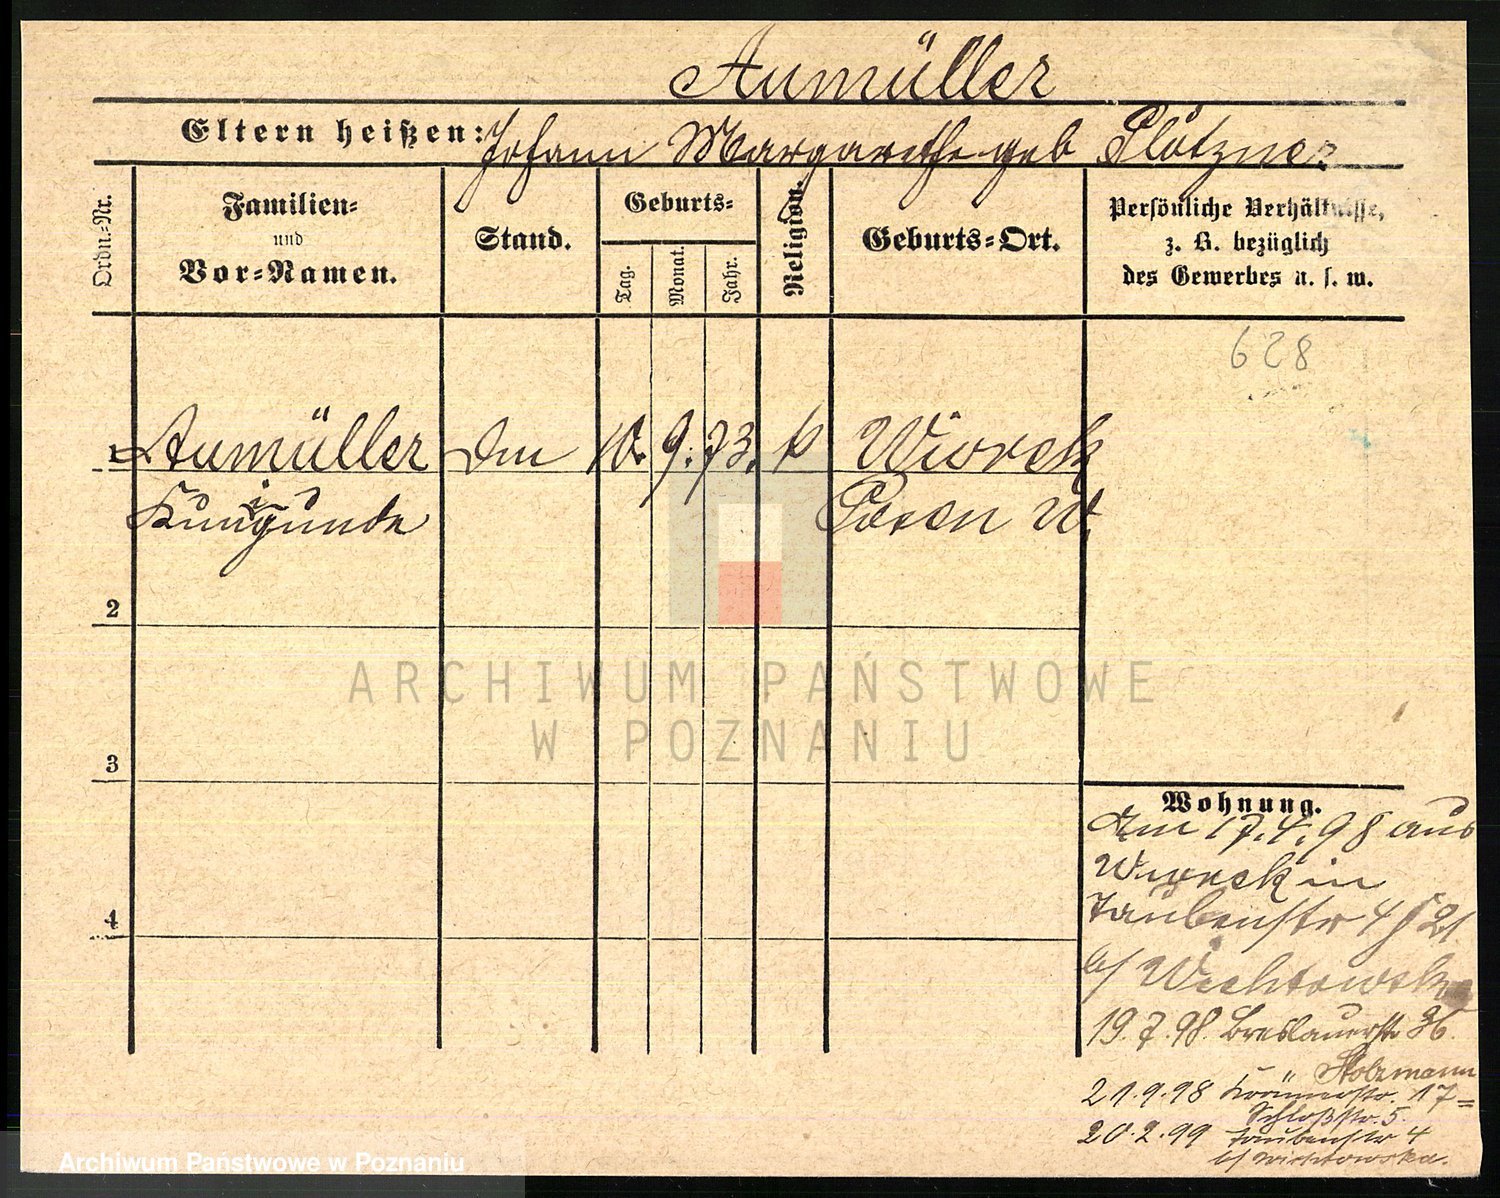 Aumüller
Eltern heißen: Johann Margarethe geb Plötzner
Ordn.-Nr.
Familien-
und
Vor-Namen.
Stand.
Geburts-
Tag.
Monat.
Jahr.
Religion.
Geburts-Ort.
Persönliche Verhältnisse,
z. B. bezüglich
des Gewerbes u. s. w.
628
1 Aumüller 10. 9. 73. k Wiorek
Kunigunde Posen W.
2
3
4
ARCHIWUM PAŃSTWOWE
W POZNANIU
Wohnung.
Am 17.4.98 aus
Wiorek in
Taubenstr 4
b/
19.7.98. Breslauerstr 36.
Stolzmann
21.9.98 17
Schloßstr. 5.
20.2.99 Taubenstr 4
b/ Wichtowska.
Archiwum Państwowe w Poznaniu